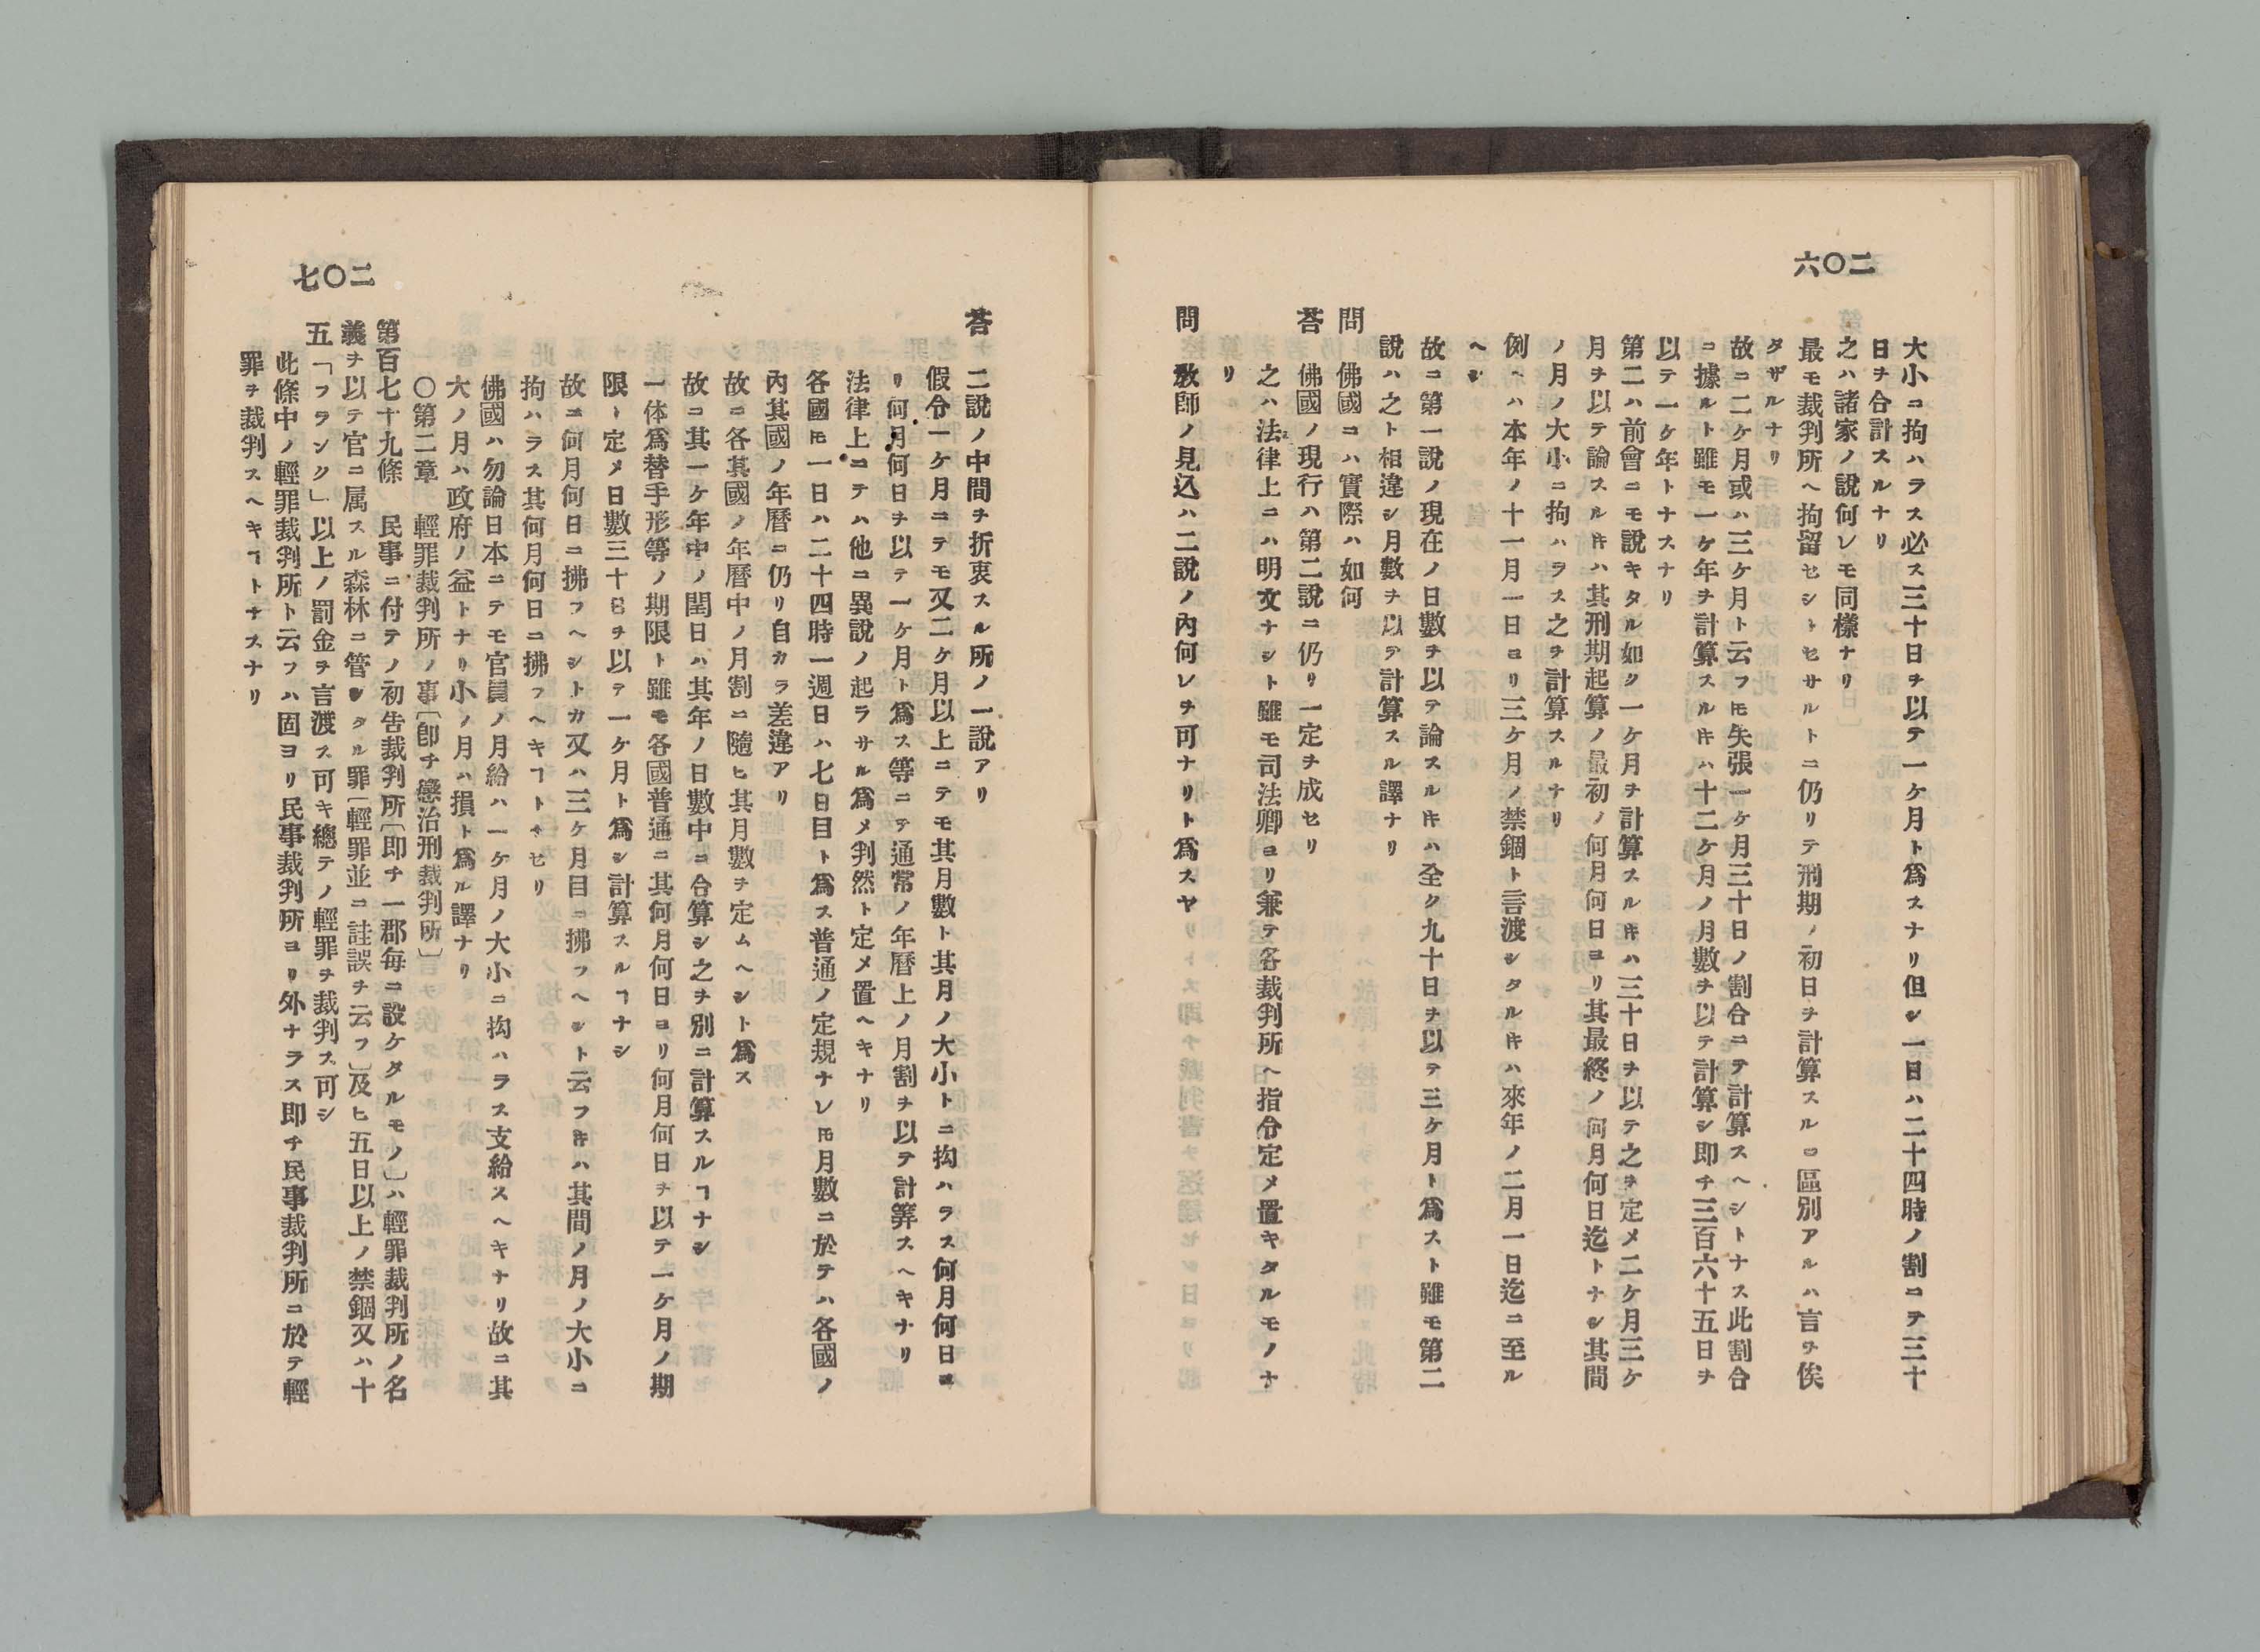 二〇六
大小ニ拘ハラス必ス三十日ヲ以テ一ケ月ト爲スナリ但シ一日ハ二十四時ノ割ニテ三十
日ヲ合計スルナリ
之ハ諸家ノ說何レモ同樣ナリ
最モ裁判所ヘ拘留セシトセサルトニ仍リテ刑期ノ初日ヲ計算スルニ區別アルハ言ヲ俟
タザルナリ
故ニ二ケ月或ハ三ケ月ト云フ𪜈矢張一ケ月三十日ノ割合ニテ計算スヘシトナス此割合
ニ據ルト雖モ一ケ年ヲ計算スルキハ十二ケ月ノ月數ヲ以テ計算シ即チ三百六十五日ヲ
以テ一ケ年トナスナリ
第二ハ前會ニモ說キタル如ク一ケ月ヲ計算スルキハ三十日ヲ以テ之ヲ定メ二ケ月三ケ
月ヲ以テ論スルキハ其刑期起算ノ最初ノ何月何日ヨリ其最終ノ何月何日迄トナシ其間
ノ月ノ大小ニ拘ハラス之ヲ計算スルナリ
例ヘハ本年ノ十一月一日ヨリ三ケ月ノ禁錮ト言渡シタルキハ來年ノ二月一日迄ニ至ル
ヘシ
故ニ第一說ノ現在ノ日數ヲ以テ論スルキハ全ク九十日ヲ以テ三ケ月ト爲スト雖モ第二
說ハ之ト相違シ月數ヲ以テ計算スル譯ナリ
問 佛國ニハ實際ハ如何
荅 佛國ノ現行ハ第二說ニ仍リ一定ヲ成セリ
之ハ法律上ニハ明文ナシト雖モ司法卿ヨリ兼テ各裁判所ヘ指令定メ置キタルモノナ
リ
問 敎師ノ見込ハ二說ノ內何レヲ可ナリト爲スヤ
二〇七
荅 二說ノ中間ヲ折衷スル所ノ一說アリ
假令一ケ月ニテモ又二ケ月以上ニテモ其月數ト其月ノ大小トニ拘ハラス何月何日ヨ
リ何月何日ヲ以テ一ケ月ト爲ス等ニテ通常ノ年曆上ノ月割ヲ以テ計算スヘキナリ
法律上ニテハ他ニ異說ノ起ラサル爲メ判然ト定メ置ヘキナリ
各國𪜈一日ハ二十四時一週日ハ七日目ト爲ス普通ノ定規ナレ𪜈月數ニ於テハ各國ノ
內其國ノ年曆ニ仍リ自カラ差違アリ
故ニ各其國ノ年曆中ノ月割ニ隨ヒ其月數ヲ定ムヘシト爲ス
故ニ其一ケ年中ノ閏日ハ其年ノ日數中ニ合算シ之ヲ別ニ計算スルヿナシ
一体爲替手形等ノ期限ト雖モ各國普通ニ其何月何日ヨリ何月何日ヲ以テ一ケ月ノ期
限ト定メ日數三十日ヲ以テ一ケ月ト爲シ計算スルヿナシ
故ニ何月何日ニ拂フヘシトカ又ハ三ケ月目ニ拂フヘシト云フキハ其間ノ月ノ大小ニ
拘ハラス其何月何日ニ拂フヘキヿトナセリ
佛國ハ勿論日本ニテモ官員ノ月給ハ一ケ月ノ大小ニ拘ハラス支給スヘキナリ故ニ其
大ノ月ハ政府ノ益トナリ小ノ月ハ損ト爲ル譯ナリ
〇第二章 輕罪裁判所ノ事〔卽チ懲治刑裁判所〕
第百七十九條 民事ニ付テノ初告裁判所〔即チ一郡每ニ設ケタルモノ〕ハ輕罪裁判所ノ名
義ヲ以テ官ニ属スル森林ニ管シタル罪〔輕罪並ニ註誤ヲ云フ〕及ヒ五日以上ノ禁錮又ハ十
五「フランク」以上ノ罰金ヲ言渡ス可キ總テノ輕罪ヲ裁判ス可シ
此條中ノ輕罪裁判所ト云フハ固ヨリ民事裁判所ヨリ外ナラス即チ民事裁判所ニ於テ輕
罪ヲ裁判スヘキヿトナスナリ